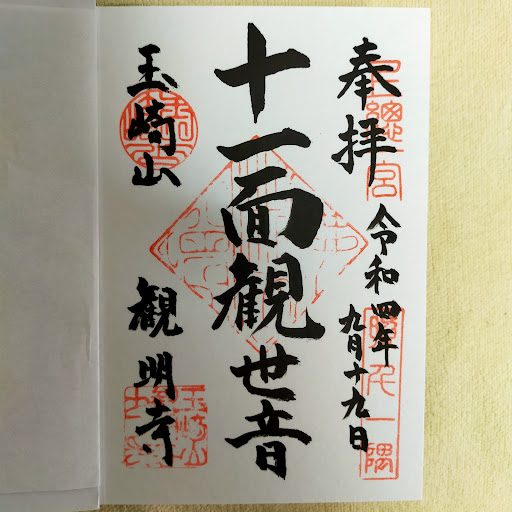 奉拝
令和四年
九月十九日
十一面観世音
玉崎山
観明寺